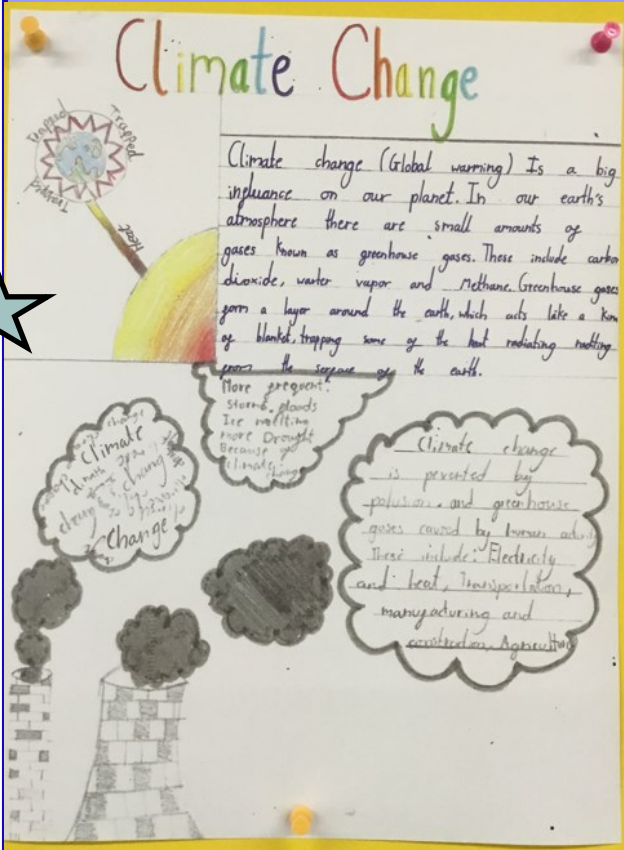 Climate Change
Trapped
Trapped
Trapped
Heat
Climate change (Global warming) Is a big
influance on our planet. In our earth's
atmosphere there are small amounts of
gases known as greenhouse gases. These include carbon
dioxide, warter vapor and Methane. Greenhouse gases
form a layer around the earth, which acts like a
of blanket, trapping some of the heat radiating
from the surface of the earth.
More frequent:
Storms, floods
Ice
more Drought
Because of
climate
change
Climate
Change
Climate change
is by
and greenhouse
gases caused by human
These include: Electricity
and heat, Transportation,
manufacturing and
construction, Agriculture